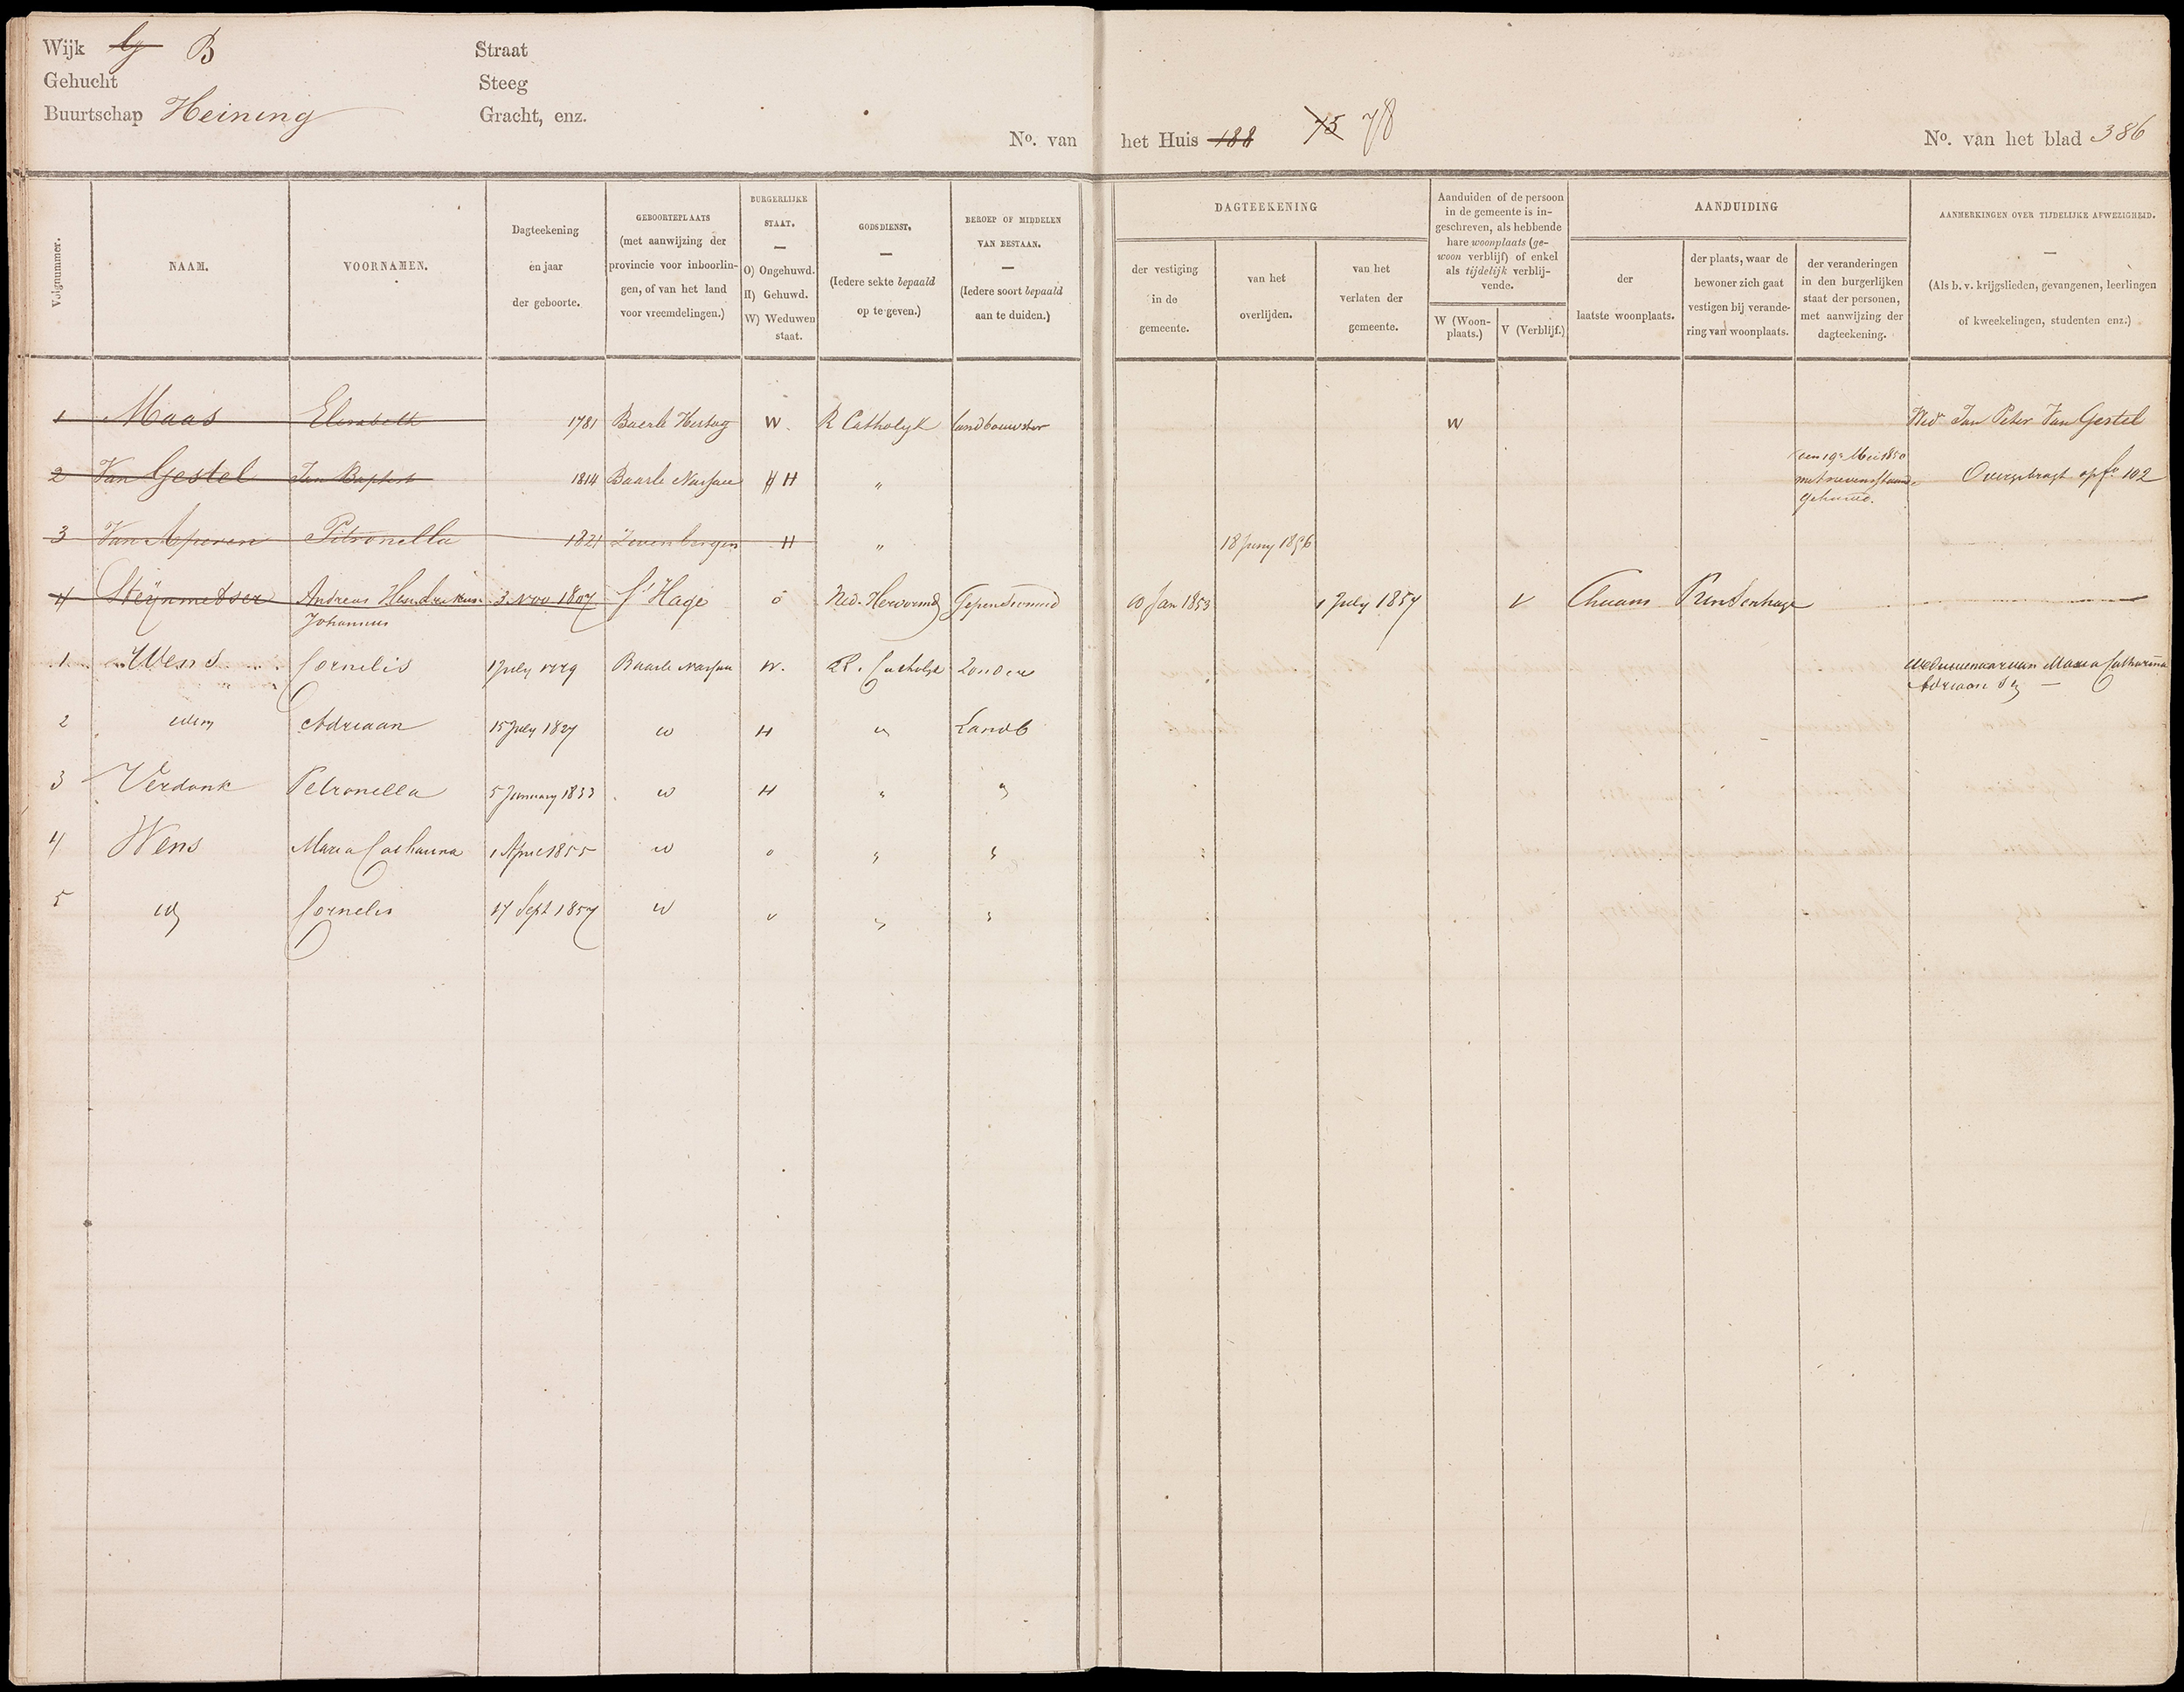 Wijk G B
Gehucht
Buurtschap Heining
Straat
Steeg
Gracht, enz.
No. van het Huis 188 75 78
No. van het blad 386
Volgnummer.
NAAM.
VOORNAMEN.
Dagteekening
en jaar
der geboorte.
GEBOORTEPLAATS
(met aanwijzing der
provincie voor inboorlin-
gen, of van het land
voor vreemdelingen.)
BURGERLIJKE
STAAT.
O) Ongehuwd.
H) Gehuwd.
W) Weduwen
staat.
GODSDIENST.
(Iedere sekte bepaald
op te geven.)
BEROEP OF MIDDELEN
VAN BESTAAN.
(Iedere soort bepaald
aan te duiden.)
DAGTEEKENING
der vestiging
in de
gemeente.
van het
overlijden.
van het
verlaten der
gemeente.
Aanduiden of de persoon
in de gemeente is in-
geschreven, als hebbende
hare woonplaats (ge-
woon verblijf) of enkel
als tijdelijk verblij-
vende.
W (Woon-
plaats.)
V (Verblijf.)
AANDUIDING
der
laatste woonplaats.
der plaats, waar de
bewoner zich gaat
vestigen bij verande-
ring van woonplaats.
der veranderingen
in den burgerlijken
staat der personen,
met aanwijzing der
dagteekening.
AANMERKINGEN OVER TIJDELIJKE AFWEZIGHEID.
(Als b. v. krijgslieden, gevangenen, leerlingen
of kweekelingen, studenten enz.)
1 Maas Elisabeth 1781 Baerle Hertog W R Catholyk landbouwster W Wed. Jan Peter Van Gestel
2 Van Gestel Jan Baptist 1814 Baarle Nassau H H " den 19 Mei 1850
met nevenstaande
gehuwd.
Overgebragt op fo 102
3 Van Aperen Pitronella 1821 Zevenbergen H " 18 Juny 1856
4 Steijnmetser Andreas Hendrikus 3 Nov 1807 s' Hage o Ned. Hervormd Gepensioneerd 10 Jan 1853 1 July 1857 V Chaam Prinsenhage
Johannes
1 Wens Cornelis 1 July 1779 Baarle Nassau W. R. Catholijk Zonder weduwenaar van Maria Catharina
Adriaan
2 idem Adriaan 15 July 1827 id H id Landb
3 Verdonk Petronella 5 January 1833 id H " "
4 Wens Maria Catharina 1 April 1855 id o " "
5 id Cornelis 17 Sept 1857 id o " "